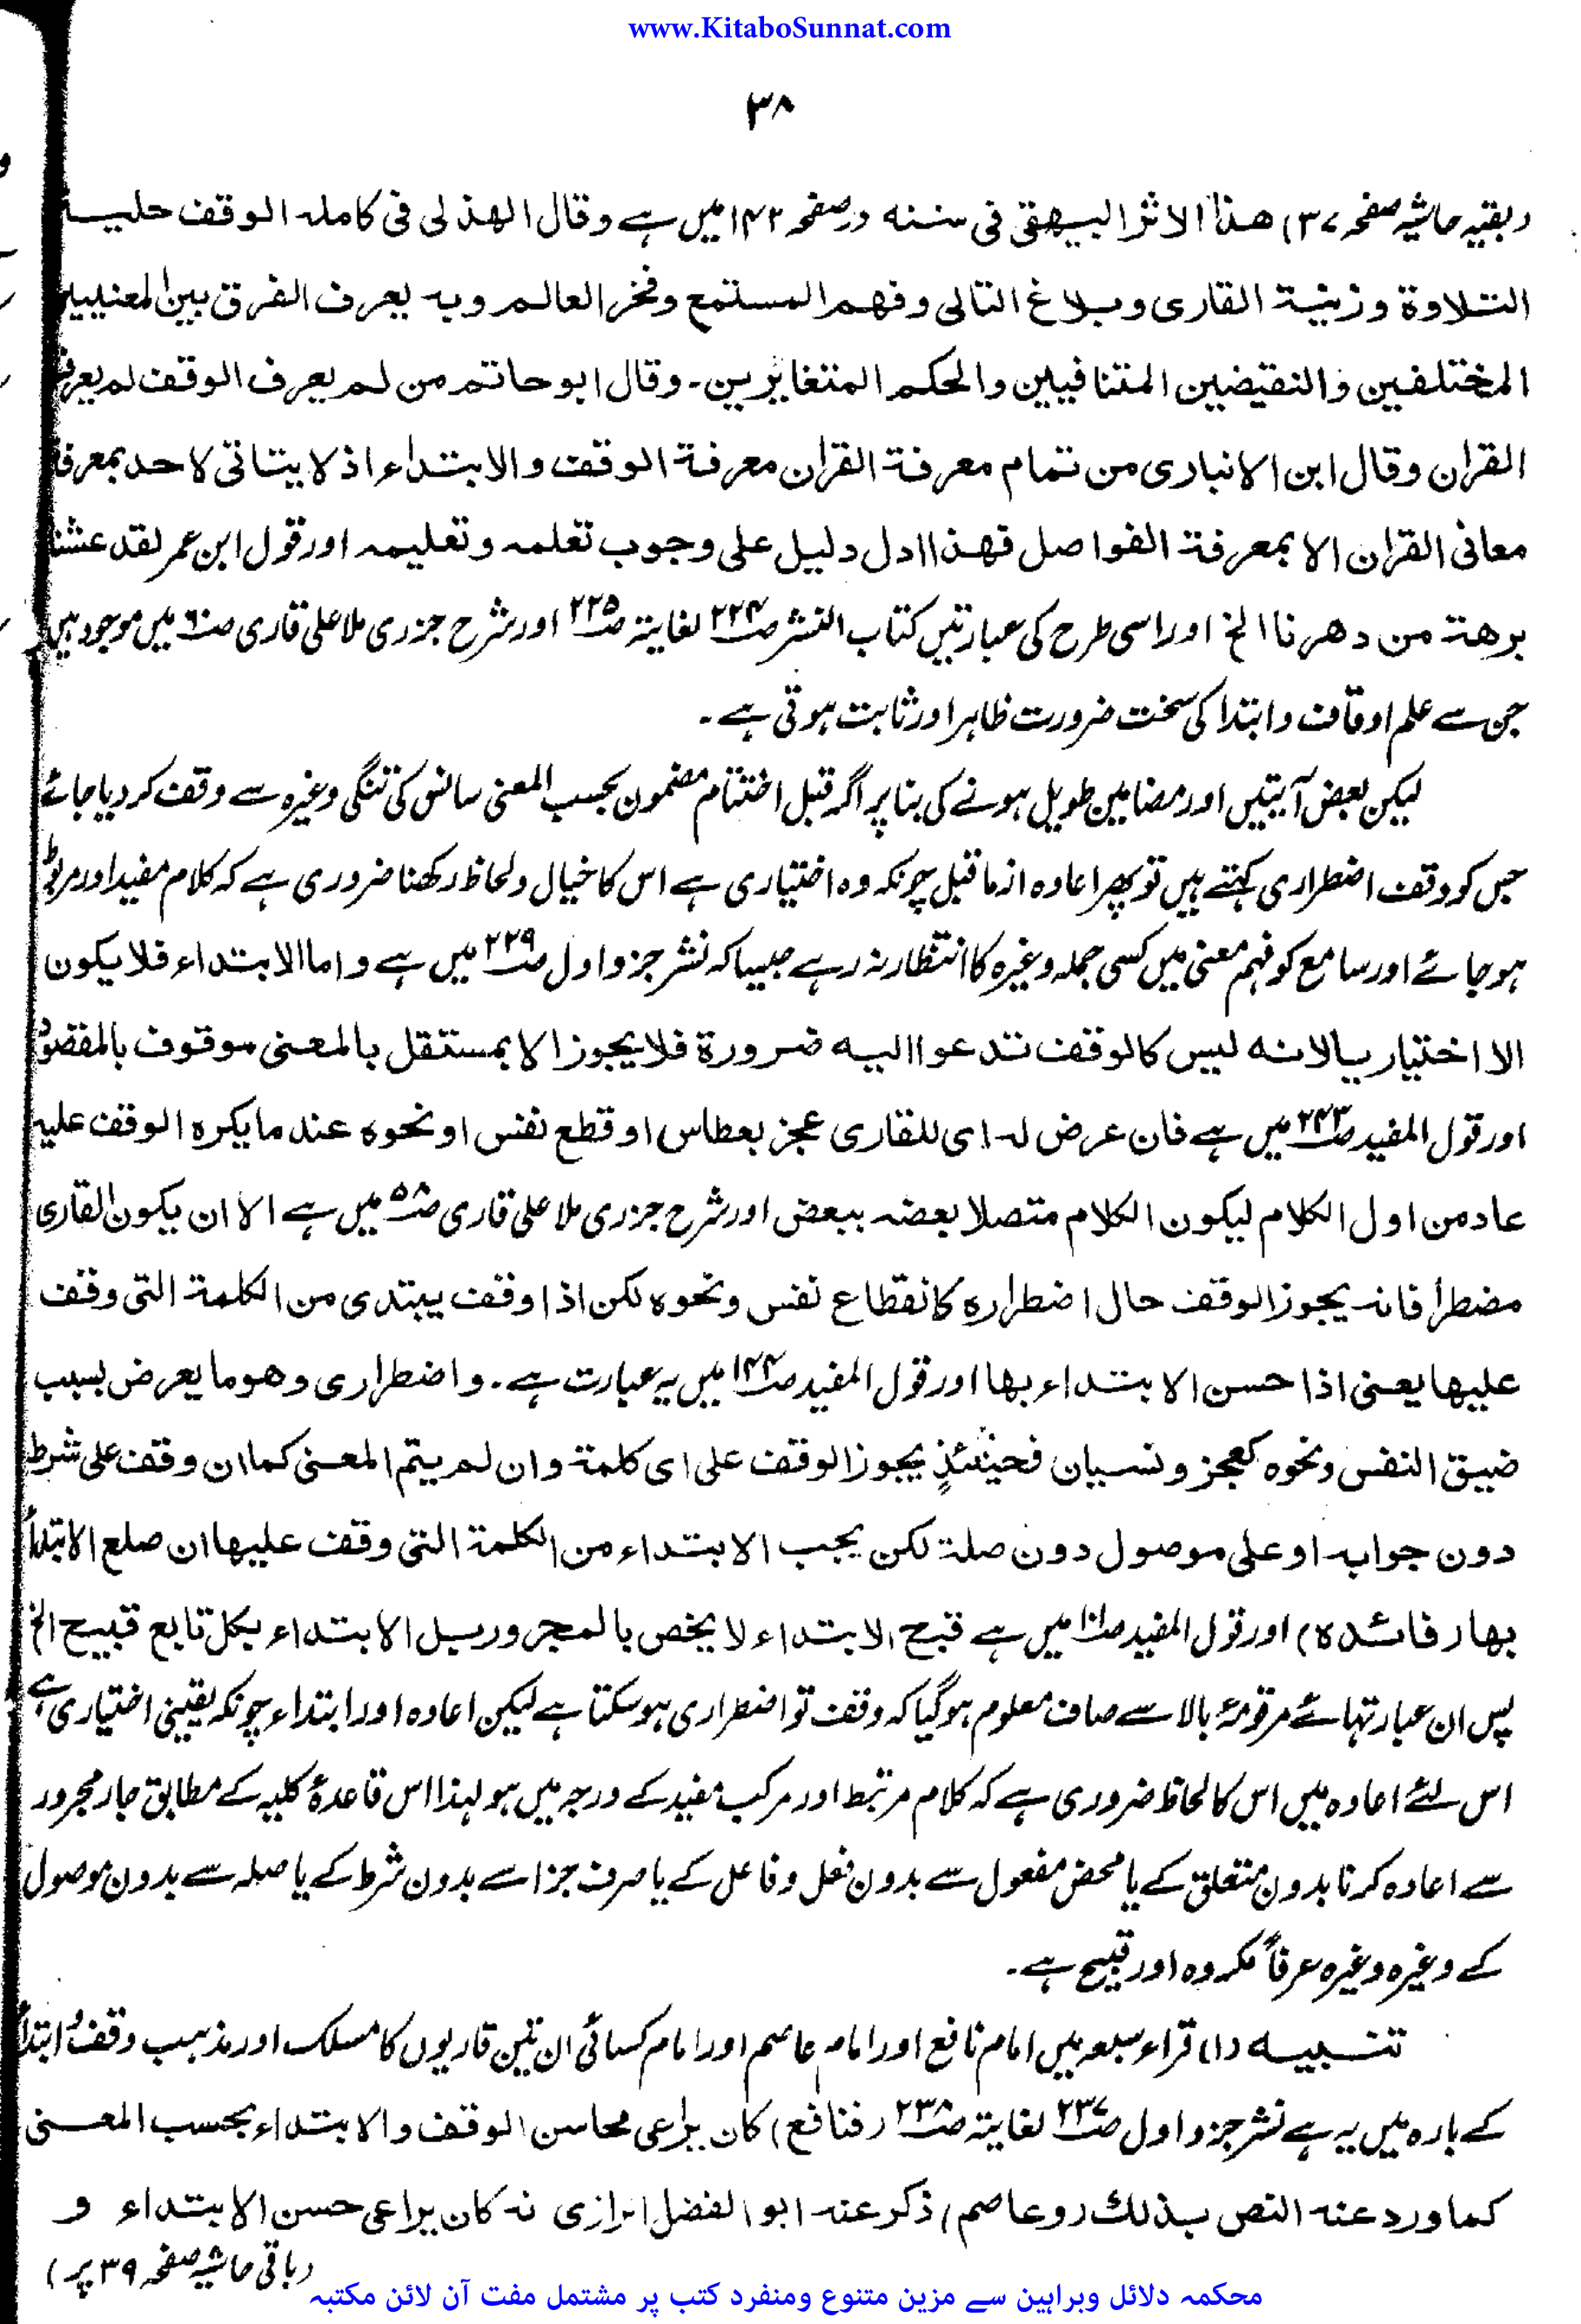 www.KitaboSunnat.com
۳۸
(بقیہ حاشیہ صفحہ ۳۷) ھذا الاثر البیھقی فی سننه درصفحہ ۱۴۲ میں ہے وقال الھذلی فی کاملہ الوقف حلیـــة
التلاوة وزینة القاری وبلاغ التالی وفھم المستمع وفخر العالم وبہ یعرف الفرق بین المعنیین
المختلفین والنقیضین المتنافیین والحکم المتغایرین۔ وقال ابوحاتم من لم یعرف الوقف لم یعرف
القرآن وقال ابن الانباری من تمام معرفة القرآن معرفة الوقف والابتداء اذ لا یتاتی لاحد بمعرفة
معانی القرآن الا بمعرفة الفواصل فھذا ادل دلیل علی وجوب تعلمہ وتعلیمہ اور قول ابن عمر لقد عشنا
برھة من دھرنا الخ اور اسی طرح کی عبارتیں کتاب النشر صـ۲۲۴ لغایتہ صـ۲۲۵ اور شرح جزری ملا علی قاری صـ۶۰ میں موجود ہیں
جن سے علم اوقاف وابتدا کی سخت ضرورت ظاہر اور ثابت ہوتی ہے۔
لیکن بعض آیتیں اور مضامین طویل ہونے کی بنا پر اگر قبل اختتام مضمون بحسب المعنی سانس کی تنگی وغیرہ سے وقف کر دیا جائے
جس کو وقف اضطراری کہتے ہیں تو پھر اعادہ از ماقبل چونکہ وہ اختیاری ہے اس کا خیال ولحاظ رکھنا ضروری ہے کہ کلام مفید اور مربوط
ہو جائے اور سامع کو فہم معنی میں کسی جملہ وغیرہ کا انتظار نہ رہے جیسا کہ نشر جزو اول صـ۲۲۹ میں ہے واما الابتداء فلا یکون
الا اختیاریا لانه لیس کالوقف تدعوا الیہ ضرورة فلا یجوز الا بمستقل بالمعنی موقوف بالمقصود
اور قول المفید صـ۲۴۳ میں ہے فان عرض لہ ای للقاری عجز بعطاس او قطع نفس او نحوہ عند ما یکرہ الوقف علیہ
عاد من اول الکلام لیکون الکلام متصلا بعضہ ببعض اور شرح جزری ملا علی قاری صـ۵۸ میں ہے الا ان یکون القاری
مضطرًا فانہ یجوز الوقف حال اضطرارہ کانقطاع نفس ونحوہ لکن اذا وقف یبتدی من الکلمة التی وقف
علیھا یعنی اذا حسن الابتداء بھا اور قول المفید صـ۱۴۴ میں یہ عبارت ہے۔ واضطراری وھو ما یعرض بسبب
ضیق النفس ونحوہ کعجز ونسیان فحینئذٍ یجوز الوقف علی ای کلمة وان لم یتم المعنی کما ان وقف علی شرط
دون جوابہ او علی موصول دون صلة لکن یجب الابتداء من الکلمة التی وقف علیھا ان صلح الابتدأ
بھا (فائدہ) اور قول المفید صـ میں ہے قبح الابتداء لا یخص بالمجرور بل الابتداء بکل تابع قبیح الخ
پس ان عبارتہائے مرقومۂ بالا سے صاف معلوم ہو گیا کہ وقف تو اضطراری ہو سکتا ہے لیکن اعادہ اور ابتداء چونکہ یقینی اختیاری ہے
اس لئے اعادہ میں اس کا لحاظ ضروری ہے کہ کلام مرتبط اور مرکب مفید کے درجہ میں ہو لہذا اس قاعدۂ کلیہ کے مطابق جار مجرور
سے اعادہ کرنا بدون متعلق کے یا محض مفعول سے بدون فعل وفاعل کے یا صرف جزا سے بدون شرط کے یا صلہ سے بدون موصول
کے وغیرہ وغیرہ عرفاً مکروہ اور قبیح ہے۔
تنبیہ (۱) قراء سبعہ میں امام نافع اور امام عاصم اور امام کسائی ان تین قاریوں کا مسلک اور مذہب وقف و ابتدأ
کے بارہ میں یہ ہے نشر جزو اول صـ۲۳۷ لغایتہ صـ۲۳۸ (فنافع) کان یراعی محاسن الوقف والابتداء بحسب المعنی
کما ورد عنہ النص بذلك (وعاصم) ذکر عنہ ابو الفضل الرازی نہ کان یراعی حسن الابتداء و
(باقی حاشیہ صفحہ ۳۹ پر)
محکمہ دلائل وبراہین سے مزین متنوع ومنفرد کتب پر مشتمل مفت آن لائن مکتبہ